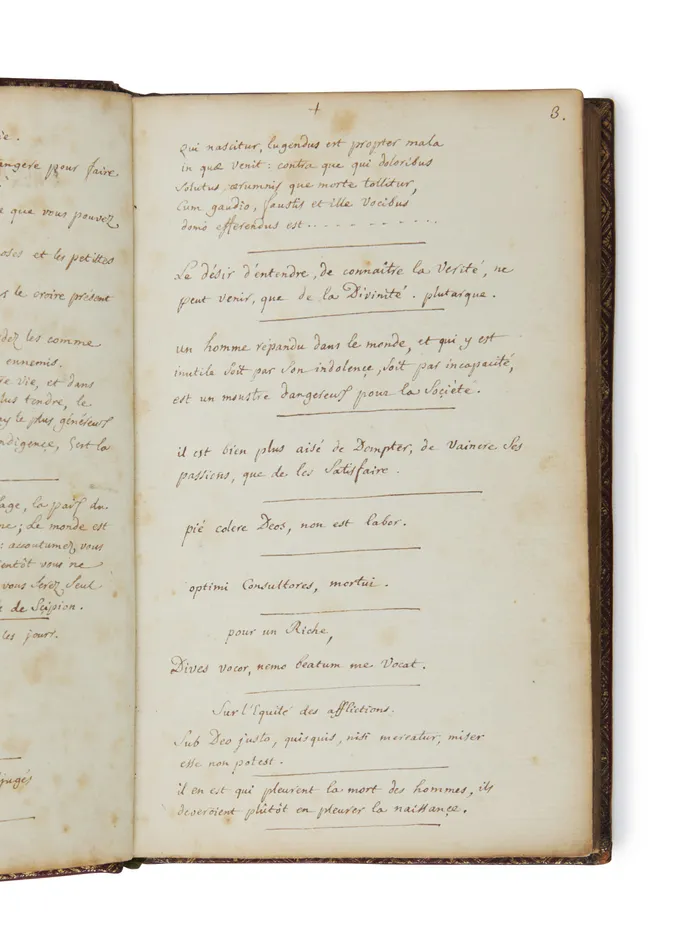 ie.
angère pour faire
e que vous pouvez
oses et les petites
r le croire présent
dez les comme
ennemis.
re vie, et dans
lus tendre, le
ay le plus généreux
ndigence, C'est la
age, la paix du
ne; Le monde est
: accoutumez vous
ientôt vous ne
vous serez seul
de Scipion.
les jours.
éjugés
+
3.
qui nascitur, lugendus est propter mala
in quæ venit: contra que qui doloribus
solutus ærumnis que morte tollitur,
Cum gaudio, faustis et ille Vocibus
domo efferendus est..........
Le désir d'entendre, de connaître la Verité, ne
peut venir, que de la Divinité. plutarque.
un homme répandu dans le monde, et qui y est
inutile soit par son indolence, soit par incapacité,
est un monstre dangereux pour la Société.
il est bien plus aisé de Dompter, de vaincre ses
passions, que de les Satisfaire.
pié colere Deos, non est labor.
optimi Consultores, mortui.
pour un Riche,
Dives vocor, nemo beatum me Vocat.
Sur l'Equité des afflictions.
Sub Deo justo, quisquis, nisi mereatur, miser
esse non potest.
il en est qui pleurent la mort des hommes, ils
deveroient plûtôt en pleurer la naissance.